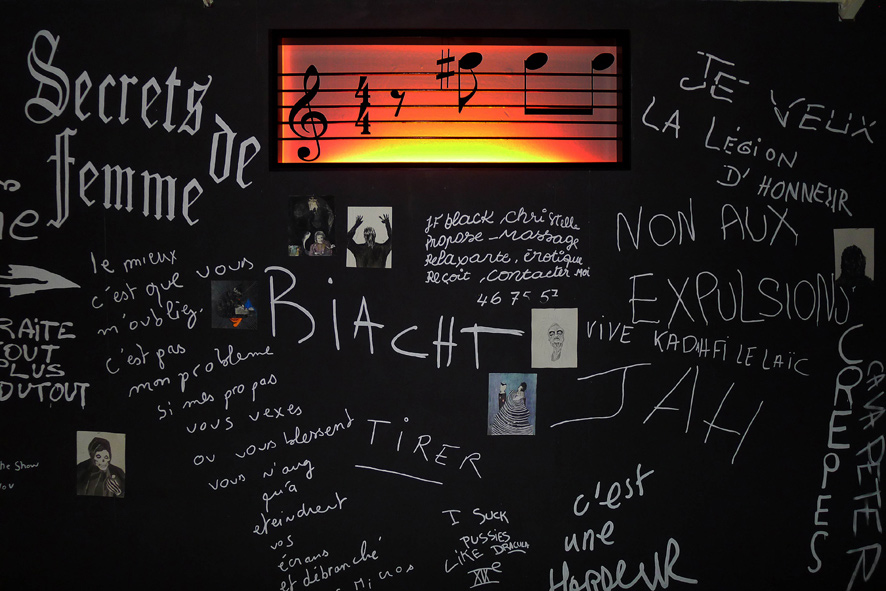 Secrets
de
femme
JE
VEUX
LA LÉGION
D'HONNEUR
NON AUX
EXPULSIONS
JF black, christelle
Propose - massage
Relaxante, érotique
Reçoit, contacter moi
46 75 57
le mieux
c'est que vous
m'oubliez.
c'est pas
mon probleme
si mes propas
vous vexes
ou vous blessent
vous n'auq
qu'à
eteindrent
vos
écrans
et débranché
Micros
RAITE
TOUT
PLUS
DUTOUT
the Show
BIACHT
VIVE KADHFI LE LAÏC
JAH
TIRER
I SUCK
PUSSIES
LIKE DRACULA
XIIIe
c'est
une
HARDEUR
CREPES
CAVA PETER